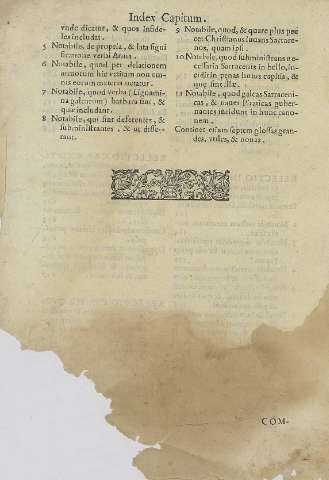 Index Capitum.
vnde dicatur, & quos Infide-
les includat.
5 Notabile, de propria, & lata signi
ficatione verbi Arma.
6 Notabile, quod per delationem
armorum hic
eorum mutatur.
7 Notabile, quod verba (Lignami-
na galearum) barbara sint, &
quæ includant.
8 Notabile, qui sint deferentes, &
subministrantes, & ut diffe-
rant.
9 Notabile, quod, & quare plus pec
cet Christianus iuuans Sarrace-
nos, quam ipsi.
10 Notabile, quod subministrans ne-
cessaria Sarracenis in bello, in-
cidit in penas huius capitis, &
quæ sint illæ.
11 Notabile, quod galeas Sarraceni-
cas, & naues Piraticas guber-
nantes incidunt in hunc cano-
nem.
Continet etiam septem glossas gran-
des, vtiles, & nouas.
COM-